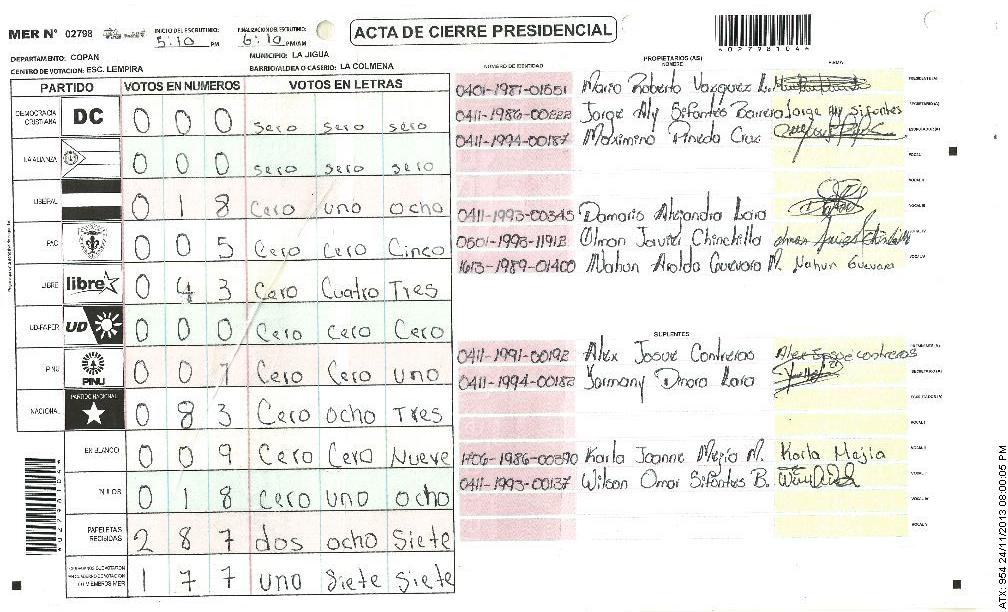 MER N° 02798
INICIO DEL ESCRUTINIO: 5:10 PM
FINALIZACION DEL ESCRUTINIO: 6:10 PM/AM
ACTA DE CIERRE PRESIDENCIAL
DEPARTAMENTO: COPAN
MUNICIPIO: LA JIGUA
CENTRO DE VOTACION: ESC. LEMPIRA
BARRIO/ALDEA O CASERIO: LA COLMENA
PARTIDO VOTOS EN NUMEROS VOTOS EN LETRAS
DEMOCRACIA CRISTIANA DC 0 0 0 sero sero sero
LA ALIANZA 0 0 0 sero sero sero
LIBERAL 0 1 8 Cero uno ocho
PAC 0 0 5 Cero Cero Cinco
LIBRE libre 0 4 3 Cero Cuatro Tres
UD-FAPER UD 0 0 0 Cero cero Cero
PINU PINU 0 0 1 Cero Cero uno
NACIONAL PARTIDO NACIONAL 0 8 3 Cero ocho Tres
EN BLANCO 0 0 9 Cero Cero Nueve
NULOS 0 1 8 cero uno ocho
PAPELETAS RECIBIDAS 2 8 7 dos ocho Siete
1 7 7 uno Siete Siete
NUMERO DE IDENTIDAD PROPIETARIOS (AS) NOMBRE FIRMA
0401-1981-01551 Mario Roberto Vazquez L. PRESIDENTE(A)
0411-1986-00222 Jorge Aly Sifontes Barrera Jorge Aly Sifontes SECRETARIO(A)
0411-1994-00187 Maximino Pineda Cruz ESCRUTADOR(A)
VOCAL I
VOCAL II
0411-1993-00345 Damaris Alejandra Lara VOCAL III
0501-1993-11912 Olman Javier Chinchilla VOCAL IV
1613-1989-01400 Nahun Aroldo Guevara M. Nahun Guevara VOCAL V
SUPLENTES
0411-1991-00192 Alex Josue Contreras Alex Josue contreras
0411-1994-00182 Yormany Dinora Lara SECRETARIO(A)
ESCRUTADOR(A)
VOCAL I
1406-1986-00290 Karla Joanne Mejia M. Karla Mejia VOCAL II
0411-1993-00137 Wilson Omar Sifontes B.
VOCAL IV
VOCAL V
ATX: 954 24/11/2013 08:00:05 PM